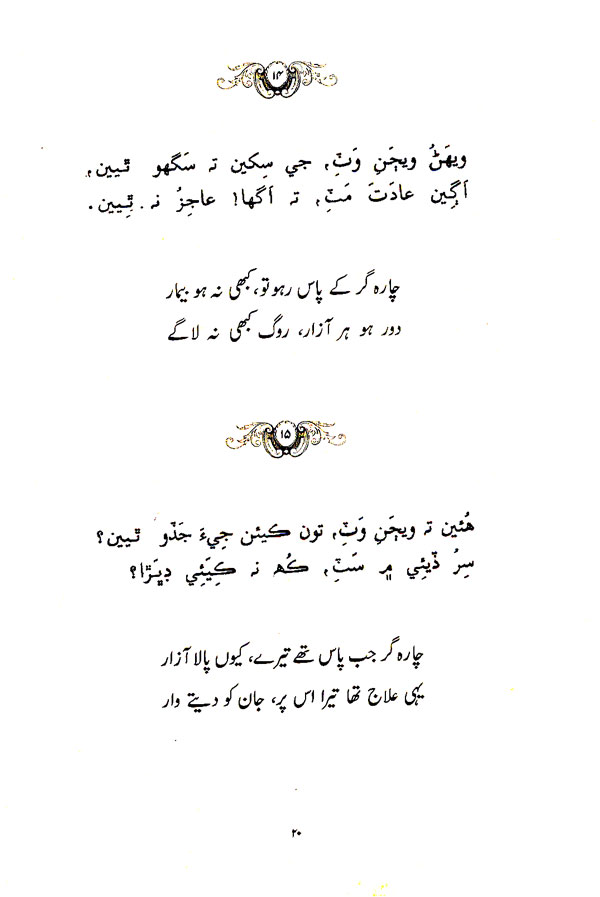 ۱۴
ويھَڻُ ويڄَنِ وَٽِ، جي سِکين تہ سَگهو ٿيين،
اَڳِين عادَتَ مَٽِ، تہ اَگها! عاجِزُ نہ ٿِيين.
چارہ گر کے پاس رہو تو، کبھی نہ ہو بیمار
دور ہو ہر آزار، روگ کبھی نہ لاگے
۱۵
ھُئين تہ ويڄَنِ وَٽِ، تون ڪيئن جِيءَ جَڏو ٿيين؟
سِرُ ڏيئِي ۾ سَٽِ، ڪُھ نہ ڪِيَئِي ڊِپَڙا؟
چارہ گر جب پاس تھے تیرے، کیوں پالا آزار
یہی علاج تھا تیرا اس پر، جان کو دیتے وار
۲۰